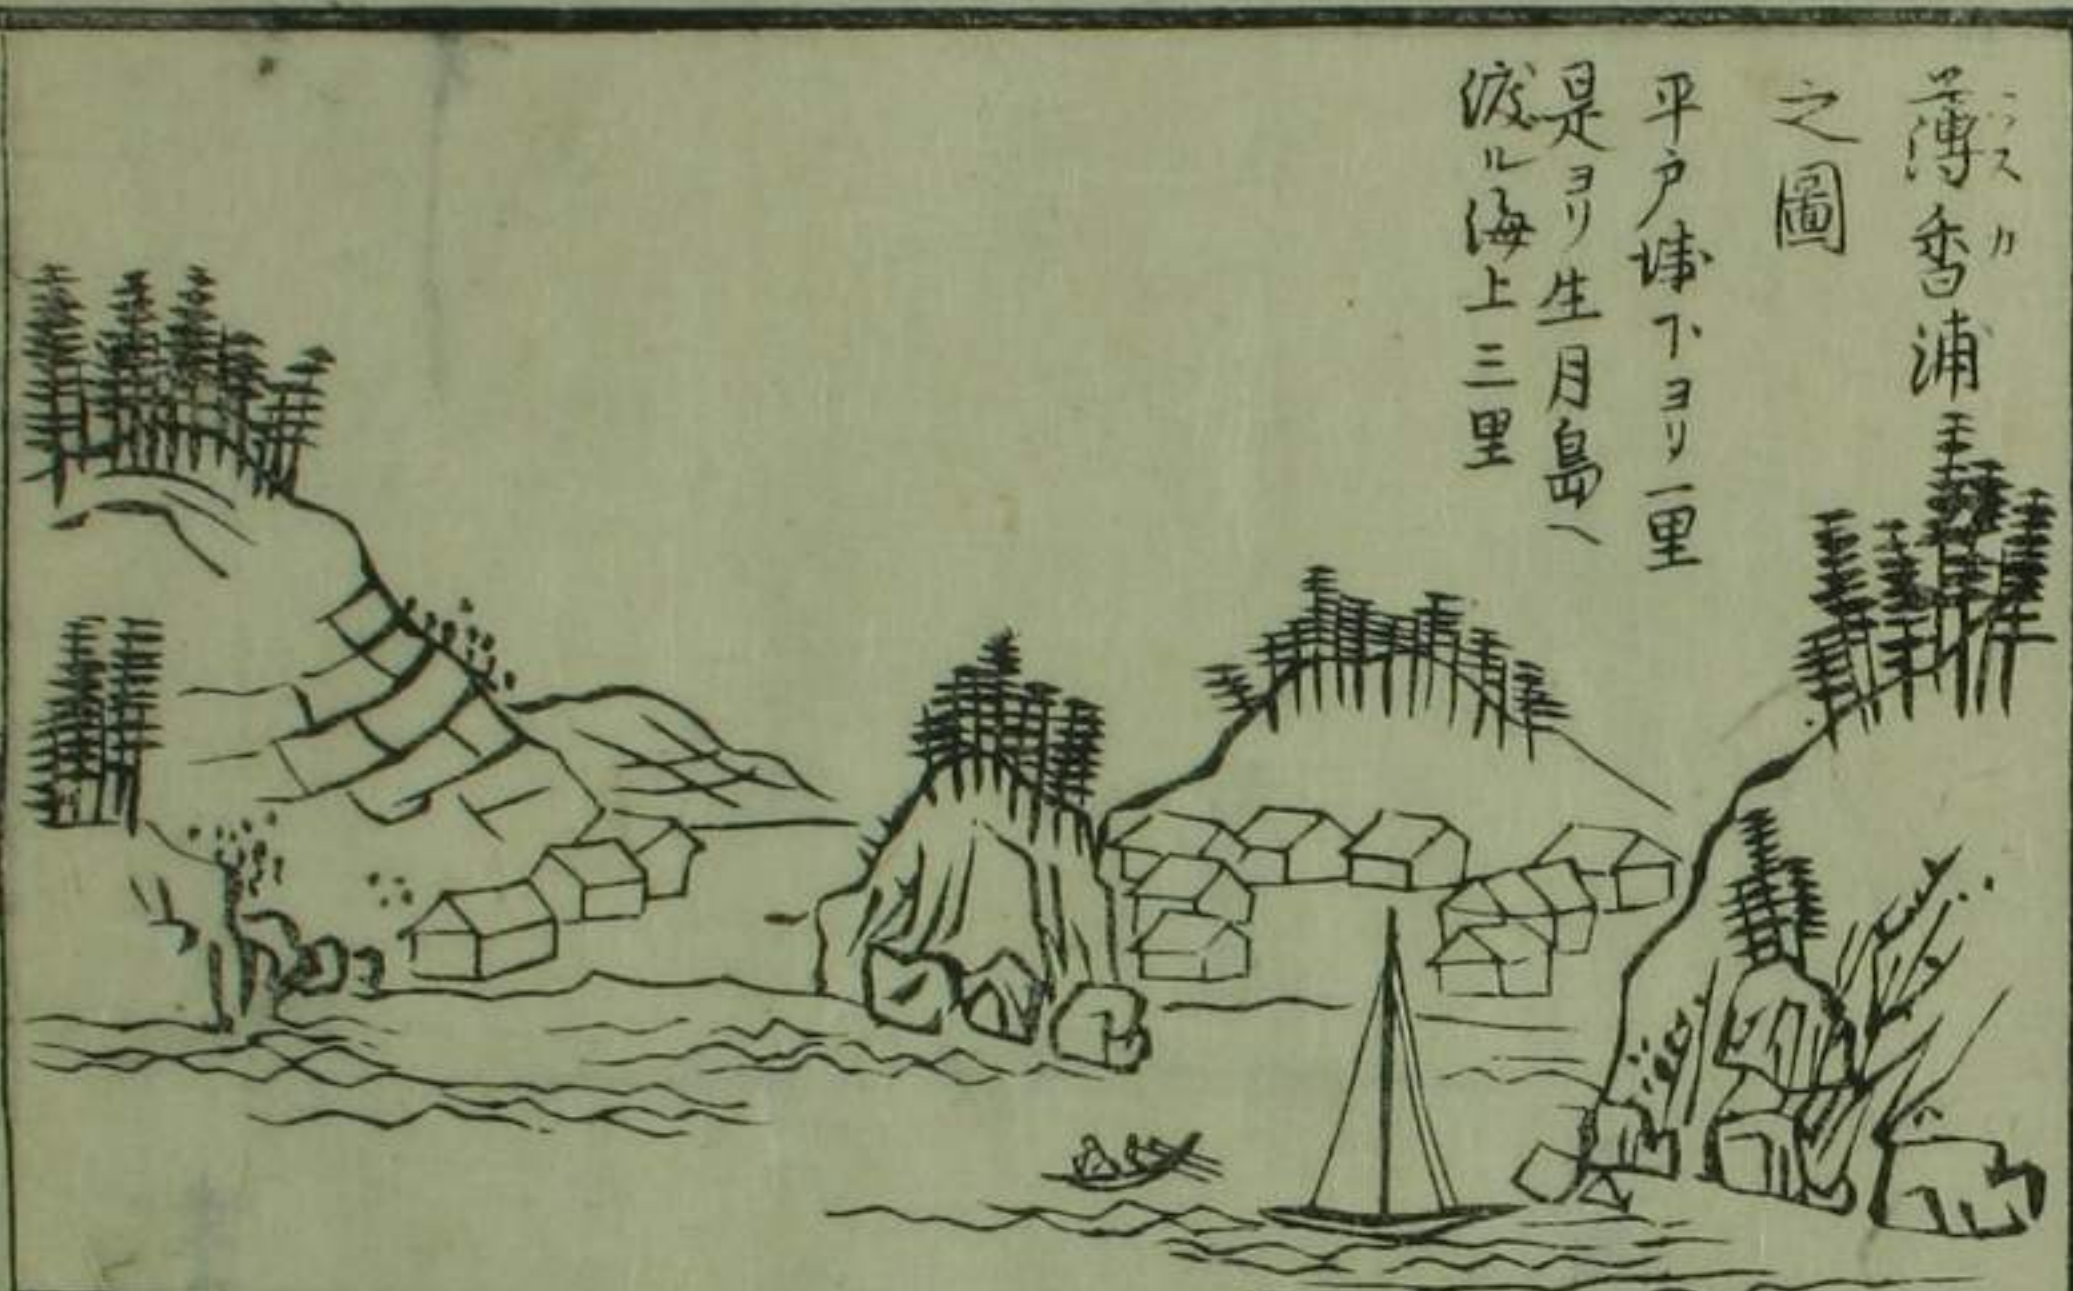 薄香浦
ウスカ
之圖
平戸城下ヨリ一里
是ヨリ生月島へ
渡ル海上三里